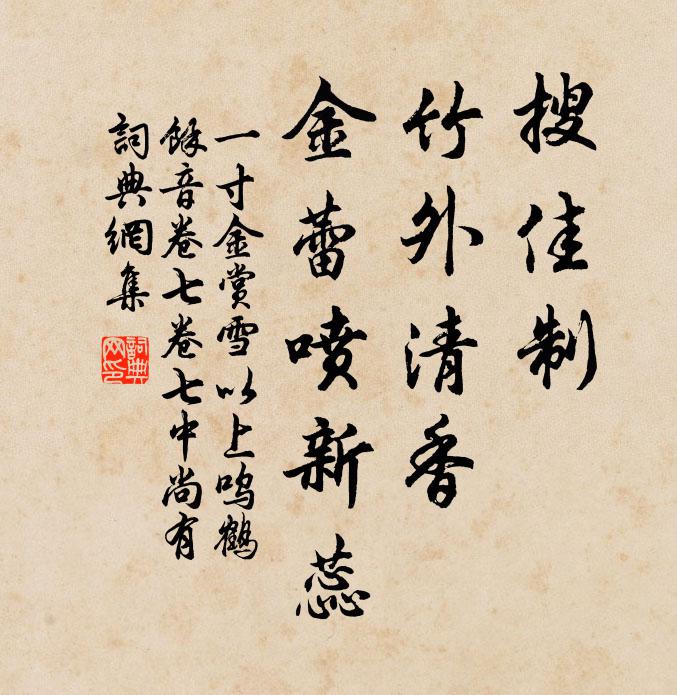 搜佳制
竹外清香
金蕾喷新蕊
一寸金赏雪以上鸣鹤
餘音卷七卷七中尚有
詞典網集
詞典
网印